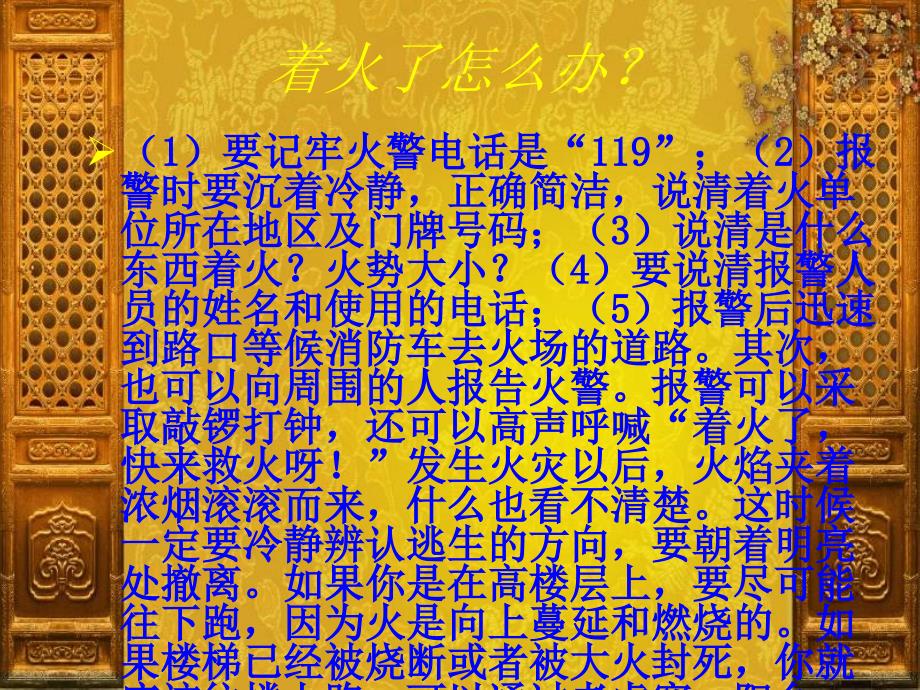 着火了怎么办？
（1）要记牢火警电话是“119”；（2）报
警时要沉着冷静，正确简洁，说清着火单
位所在地区及门牌号码；（3）说清是什么
东西着火？火势大小？（4）要说清报警人
员的姓名和使用的电话；（5）报警后迅速
到路口等候消防车去火场的道路。其次，
也可以向周围的人报告火警。报警可以采
取敲锣打钟，还可以高声呼喊“着火了，
快来救火呀！”发生火灾以后，火焰夹着
浓烟滚滚而来，什么也看不清楚。这时候
一定要冷静辨认逃生的方向，要朝着明亮
处撤离。如果你是在高楼层上，要尽可能
往下跑，因为火是向上蔓延和燃烧的。如
果楼梯已经被烧断或者被大火封死，你就